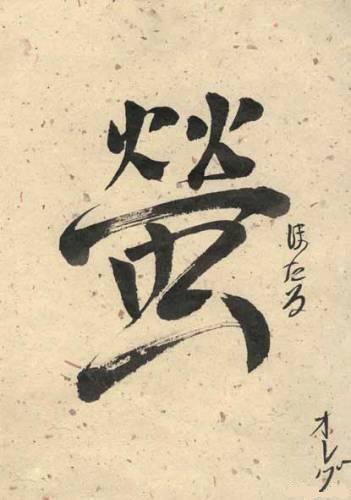 螢
ほたる
オレグ